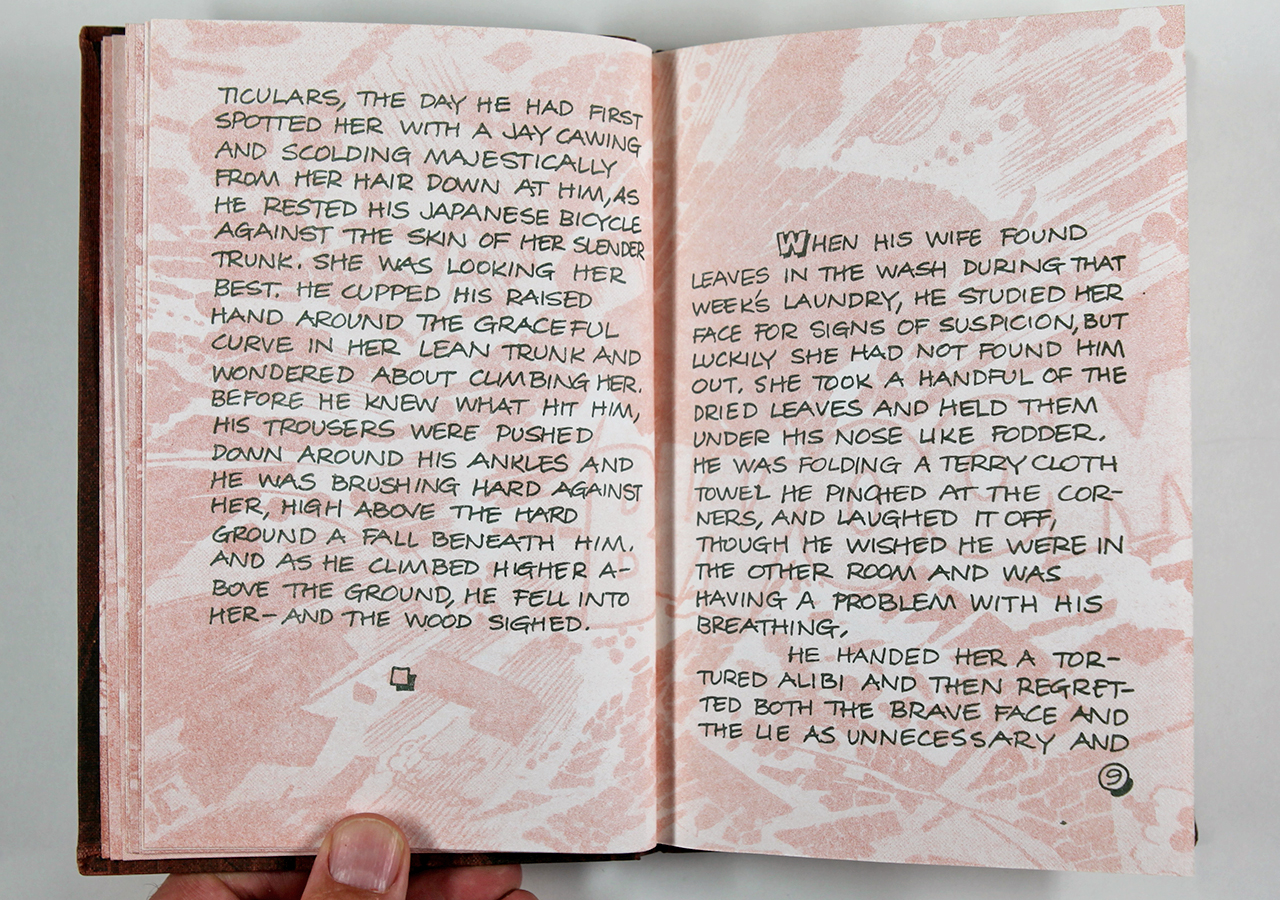 TICULARS, THE DAY HE HAD FIRST
SPOTTED HER WITH A JAY CAWING
AND SCOLDING MAJESTICALLY
FROM HER HAIR DOWN AT HIM, AS
HE RESTED HIS JAPANESE BICYCLE
AGAINST THE SKIN OF HER SLENDER
TRUNK. SHE WAS LOOKING HER
BEST. HE CUPPED HIS RAISED
HAND AROUND THE GRACEFUL
CURVE IN HER LEAN TRUNK AND
WONDERED ABOUT CLIMBING HER.
BEFORE HE KNEW WHAT HIT HIM,
HIS TROUSERS WERE PUSHED
DOWN AROUND HIS ANKLES AND
HE WAS BRUSHING HARD AGAINST
HER, HIGH ABOVE THE HARD
GROUND A FALL BENEATH HIM.
AND AS HE CLIMBED HIGHER A-
BOVE THE GROUND, HE FELL INTO
HER—AND THE WOOD SIGHED.
WHEN HIS WIFE FOUND
LEAVES IN THE WASH DURING THAT
WEEK'S LAUNDRY, HE STUDIED HER
FACE FOR SIGNS OF SUSPICION, BUT
LUCKILY SHE HAD NOT FOUND HIM
OUT. SHE TOOK A HANDFUL OF THE
DRIED LEAVES AND HELD THEM
UNDER HIS NOSE LIKE FODDER.
HE WAS FOLDING A TERRY CLOTH
TOWEL HE PINCHED AT THE COR-
NERS, AND LAUGHED IT OFF,
THOUGH HE WISHED HE WERE IN
THE OTHER ROOM AND WAS
HAVING A PROBLEM WITH HIS
BREATHING.
HE HANDED HER A TOR-
TURED ALIBI AND THEN REGRET-
TED BOTH THE BRAVE FACE AND
THE LIE AS UNNECESSARY AND
9